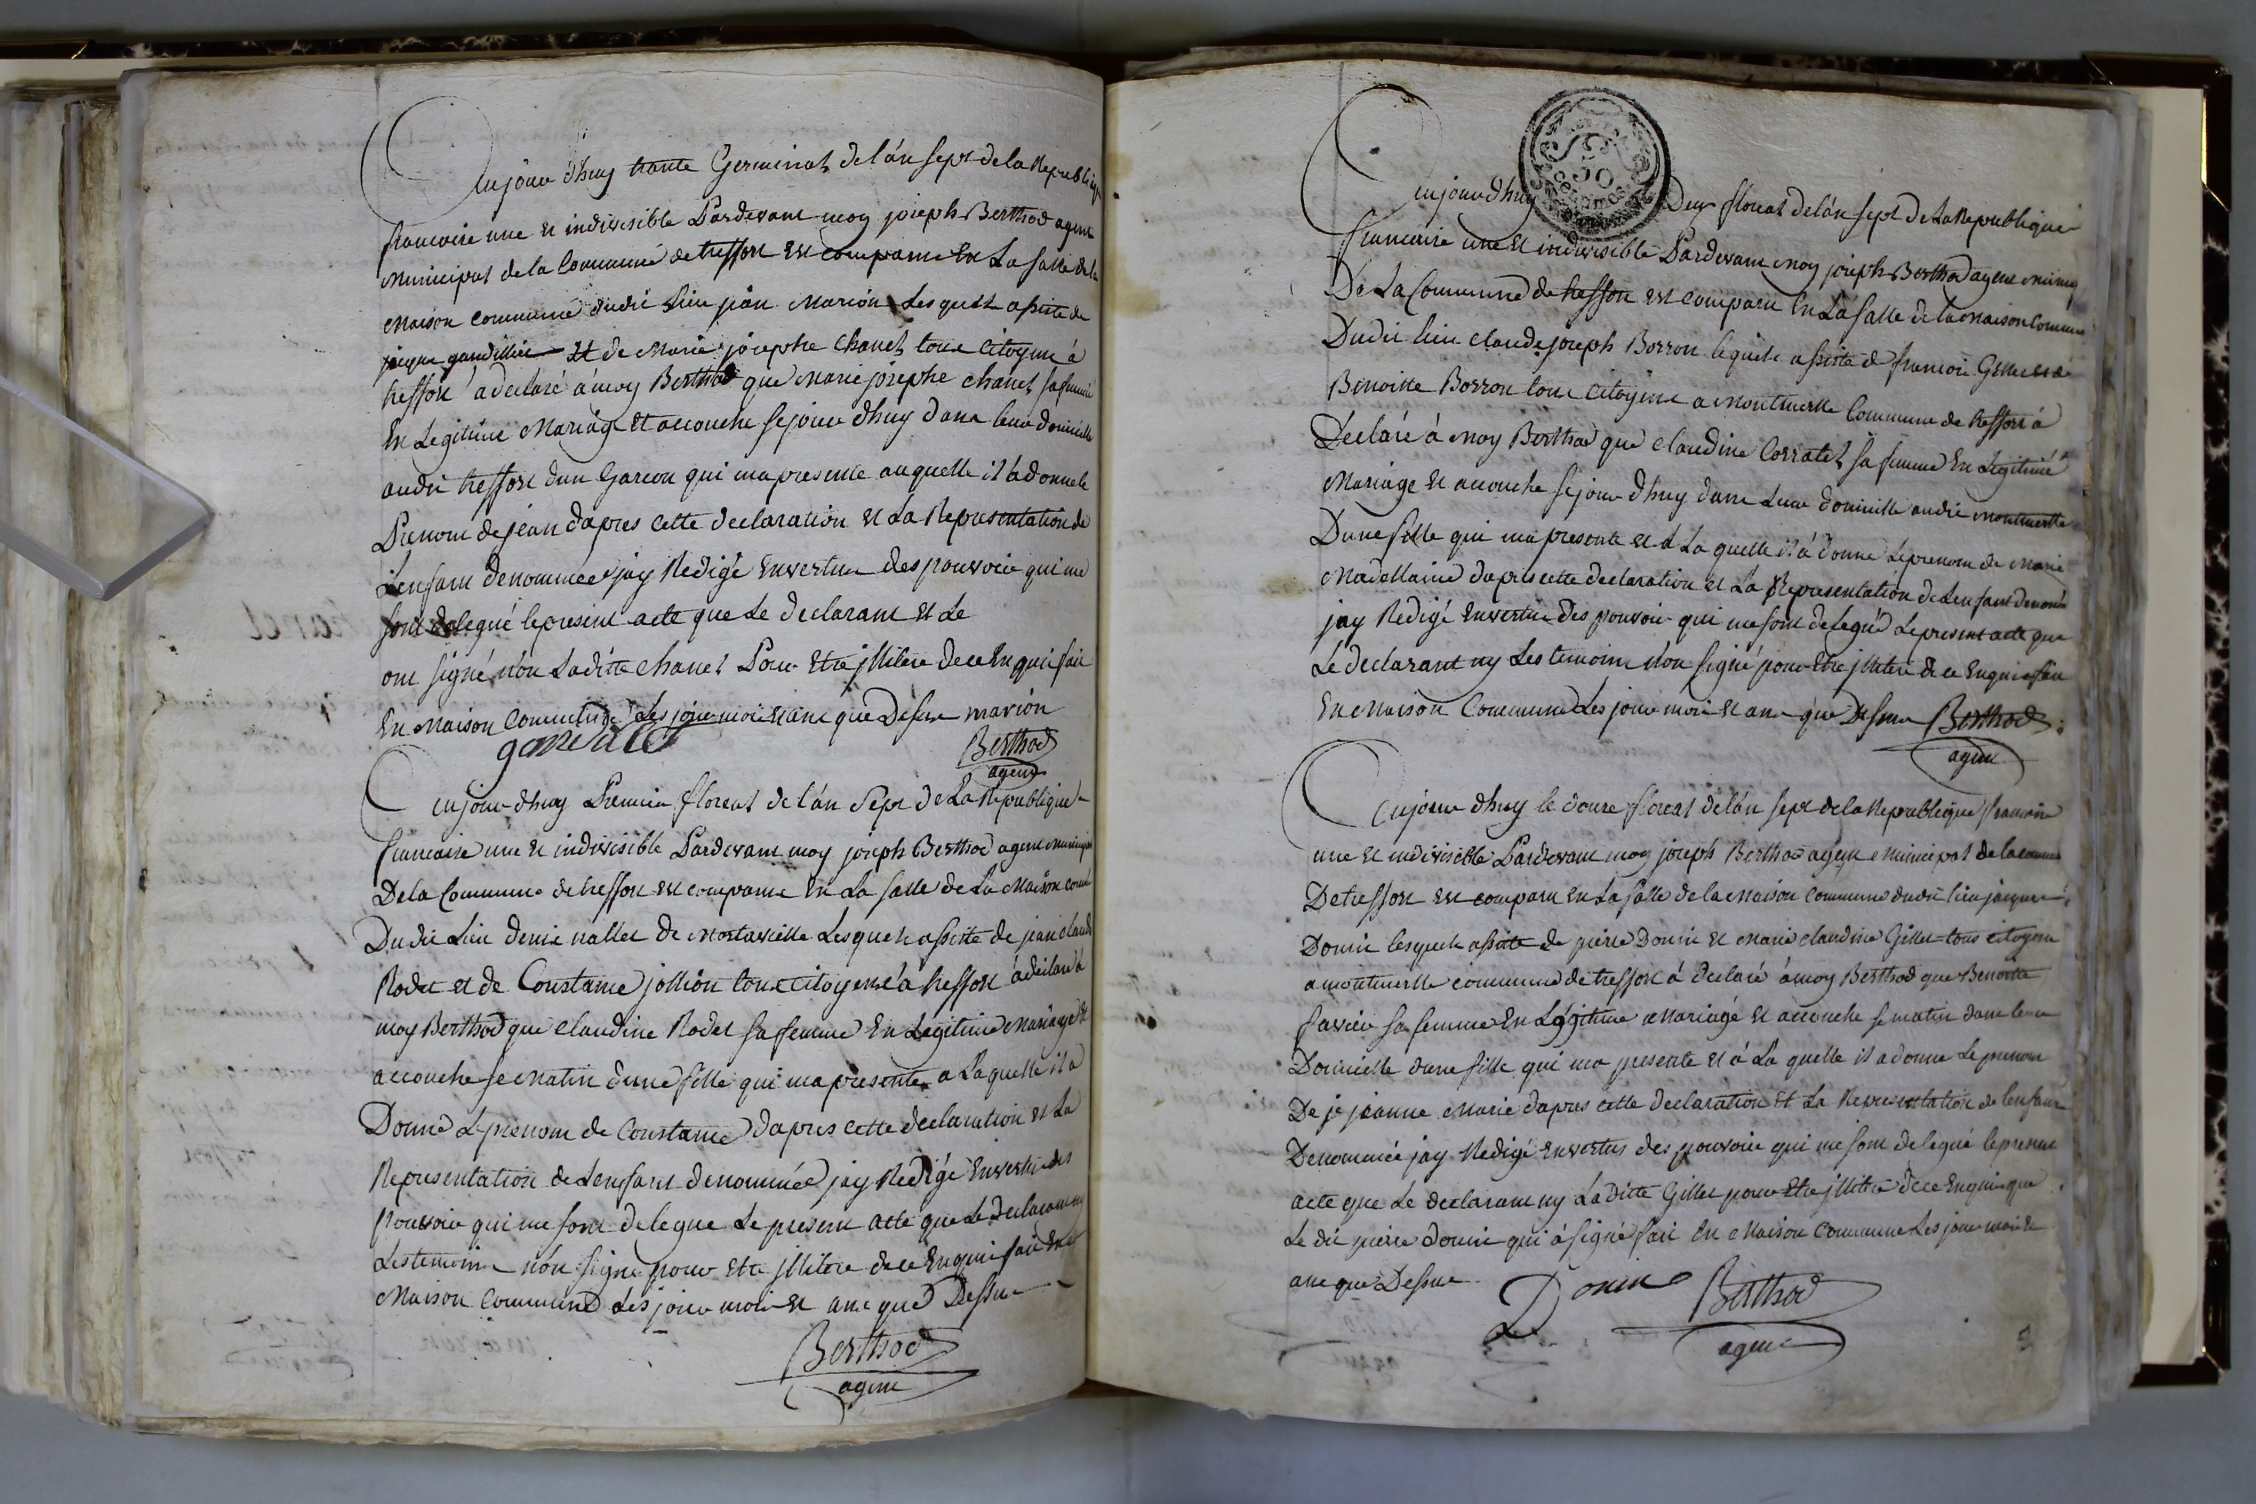 Aujour dhuy trante Germinal de lán sept de la Republique
francoise une et indivisible Pardevant moy joseph Berthod agent
Municipal de la Commune de tresfort est comparue En La salle de la
Maison commune dudit Lieu jéan Marion Lesquels assiste de
jacque gaudillier et de Marie josephe Chanel tous Citoyens á
tresfort á declaré á moy Berthod que Marie josephe Chanel sa femme
En Legitime Mariage Et accouche sejour dhuy dans leur domicille
audit tresfort dun Garcon qui ma presente auquelle il a donne le
Prenom de jean dapres cette declaration et La Representation de
Lenfant denommée jay Redigé Envertue des pouvoir qui me
sont delegué le present acte que Le declarant et Le
ont signé nón Laditte Chanel Pour Etre jllitere de ce Enqui fait
En Maison Commune Les jour mois et ans que Dessus marion
Berthod
agent
Aujour dhuy Premier floreal de lán Sept de La Republique
francaise une et indivisible Pardevant moy joseph Berthod agent municipal
De la Commune de tresfort est comparue En La salle de La Maison comm
Dudit Lieu denis nallet de Montaville Lesquels assiste de jean claude
Rodet et de Constance jollion tous citoyens á tresfort á déclaré á
moy Berthod que Claudine Rodet sa femme En Legitime Mariage et
accouche se Matin dune fille qui ma presente a Laquelle il a
Donné Le prenom de Constance dapres cette declaration et La
Representation de Lenfant denommée jay Redigé Envertue des
pouvoir qui me sont delegue Le present acte que Le Declarant ny
Les temoins nón signé pour etre jllitere de ce Enqui fait En
Maison Commune Les jour mois et ans que Dessus
Berthod
agent
Aujour dhuy Deux floreal de lán sept de La Republique
francaise une et indivisible Pardevant moy joseph Berthod agent Munip
De La Commune de tresfort est comparu En La Salle de la Maison Commune
Dudit lieu claude joseph Borron lequels assiste de francois Gillet et de
Benoitte Borron tous Citoyens a Montmerle Commune de tresfort á
Declaré á moy Berthod que claudine Corratel sa femme En Legitime
Mariage et accouche sejour dhuy dans Leur domicille audit Montmerle
Dune fille qui ma presente et á La quelle il á donne Le prenom de Marie
Madellaine dapres cette declaration et La Representation de Lenfant denomé
jay Redigé Envertue des pouvoir qui me sont delegué Le present acte que
Le declarant ny Les temoins nón signé pour Etre jllitere de ce Enqui fait
En Maison Commune Les jour mois et ans que Dessus Berthod
agent
Aujour dhuy le douze floreal de lán sept de la Republique francaise
une et indivisible Pardevant moy joseph Berthod agent municipal de la commune
De tresfort est comparu En La salle de la Maison Commune dudit lieu jacques
Donin lesquels assiste de pierre Donin et Marie claudine Gillet tous citoyens
a montmerle commune de tresfort á declaré á moy Berthod que Benoitte
favier sa femme En Légitime Mariagé et accouche se matin dans leur
Domicille dune fille qui ma presente et á La quelle il a donne Le prenom
De je jéanne Marie dapres cette declaration et La Representation de lenfant
Denommée jay Redigé Envertus des pouvoir qui me sont delegué le present
acte que Le declarant ny Laditte Gillet pour Etre jllitere de ce Enqui que
Le dit pierre donin qui á signé fait En Maison Commune Les jour mois et
ans que Dessus
Donin Berthod
agent